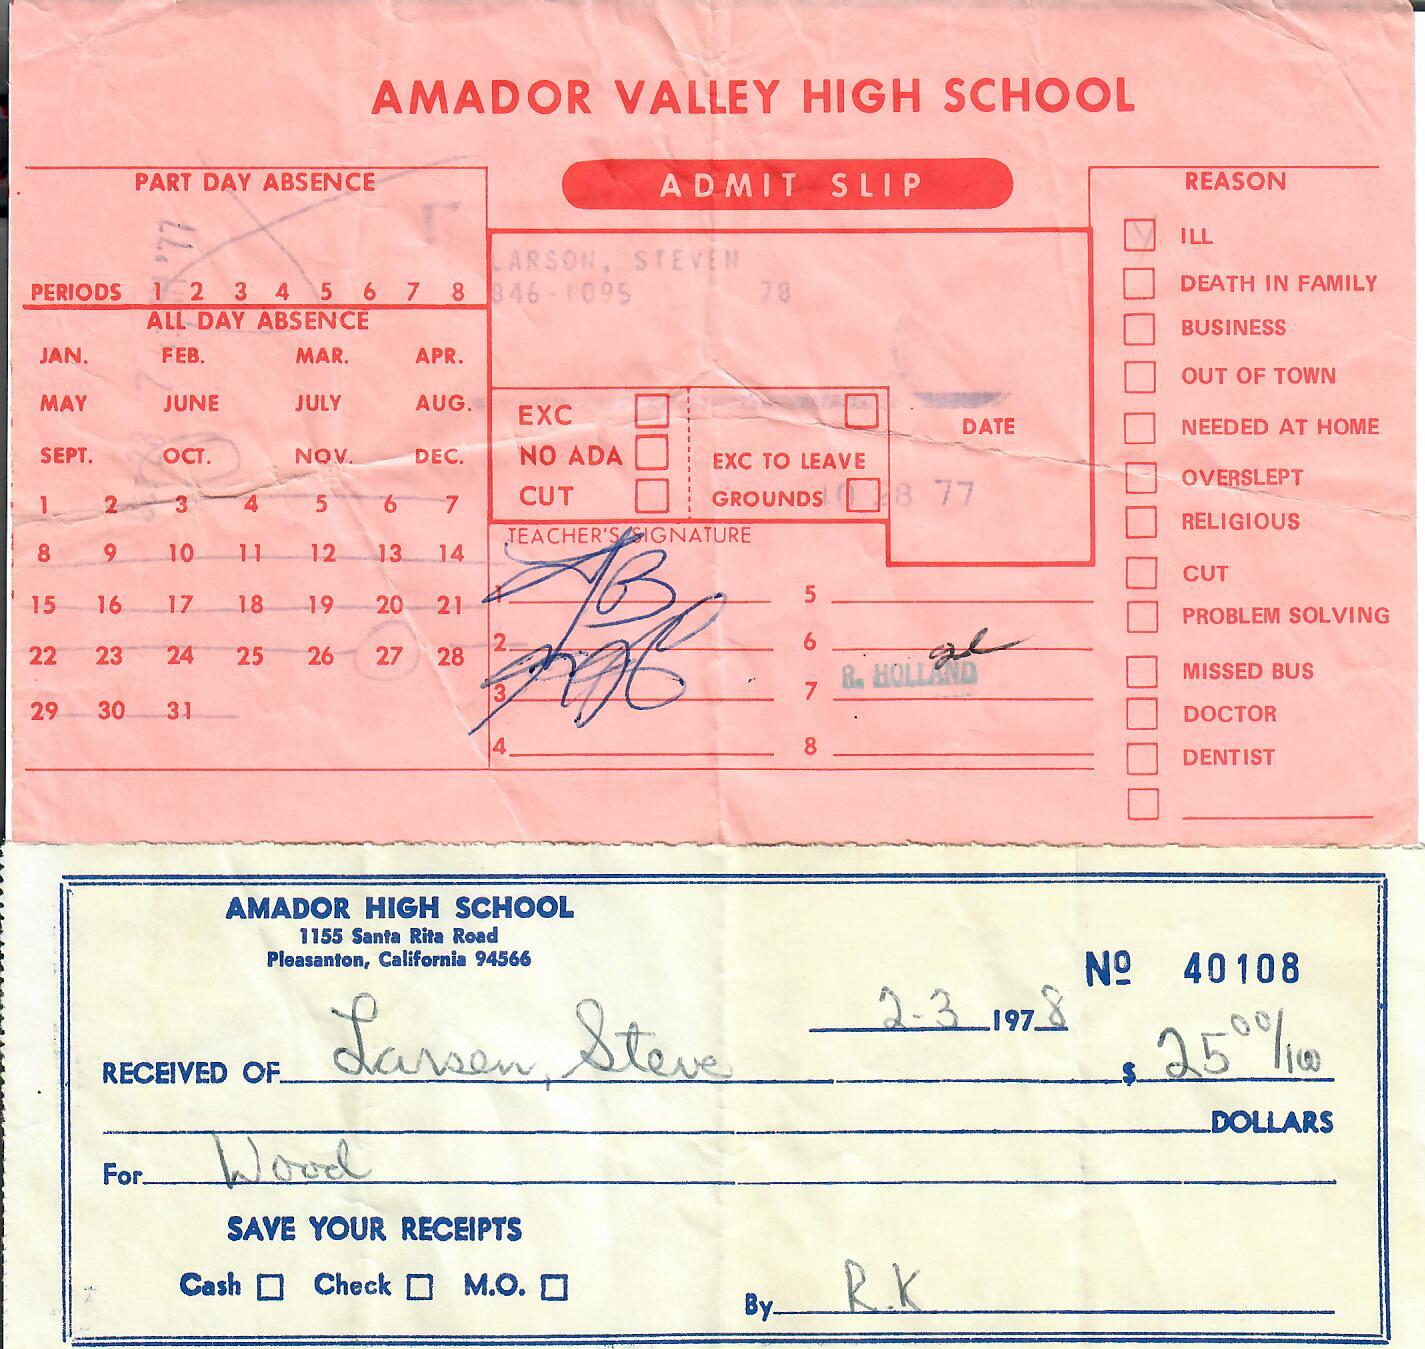 AMADOR VALLEY HIGH SCHOOL
ADMIT SLIP
PART DAY ABSENCE
PERIODS 1 2 3 4 5 6 7 8
ALL DAY ABSENCE
JAN. FEB. MAR. APR.
MAY JUNE JULY AUG.
SEPT. OCT. NOV. DEC.
1 2 3 4 5 6 7
8 9 10 11 12 13 14
15 16 17 18 19 20 21
22 23 24 25 26 27 28
29 30 31
LARSON, STEVEN
846-1095 78
EXC
NO ADA
CUT
EXC TO LEAVE
GROUNDS
DATE
10 28 77
TEACHER'S SIGNATURE
1 5
2 6
3 7
R. HOLLAND
4 8
REASON
ILL
DEATH IN FAMILY
BUSINESS
OUT OF TOWN
NEEDED AT HOME
OVERSLEPT
RELIGIOUS
CUT
PROBLEM SOLVING
MISSED BUS
DOCTOR
DENTIST
AMADOR HIGH SCHOOL
1155 Santa Rita Road
Pleasanton, California 94566
Nº 40108
2-3 1978
RECEIVED OF Larsen, Steve $ 25 00/100
DOLLARS
For Wood
SAVE YOUR RECEIPTS
Cash Check M.O.
By R.K